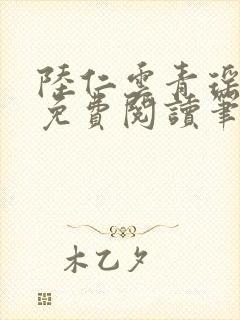 陸仁雲青瑶
免費閱讀筆
木乙夕